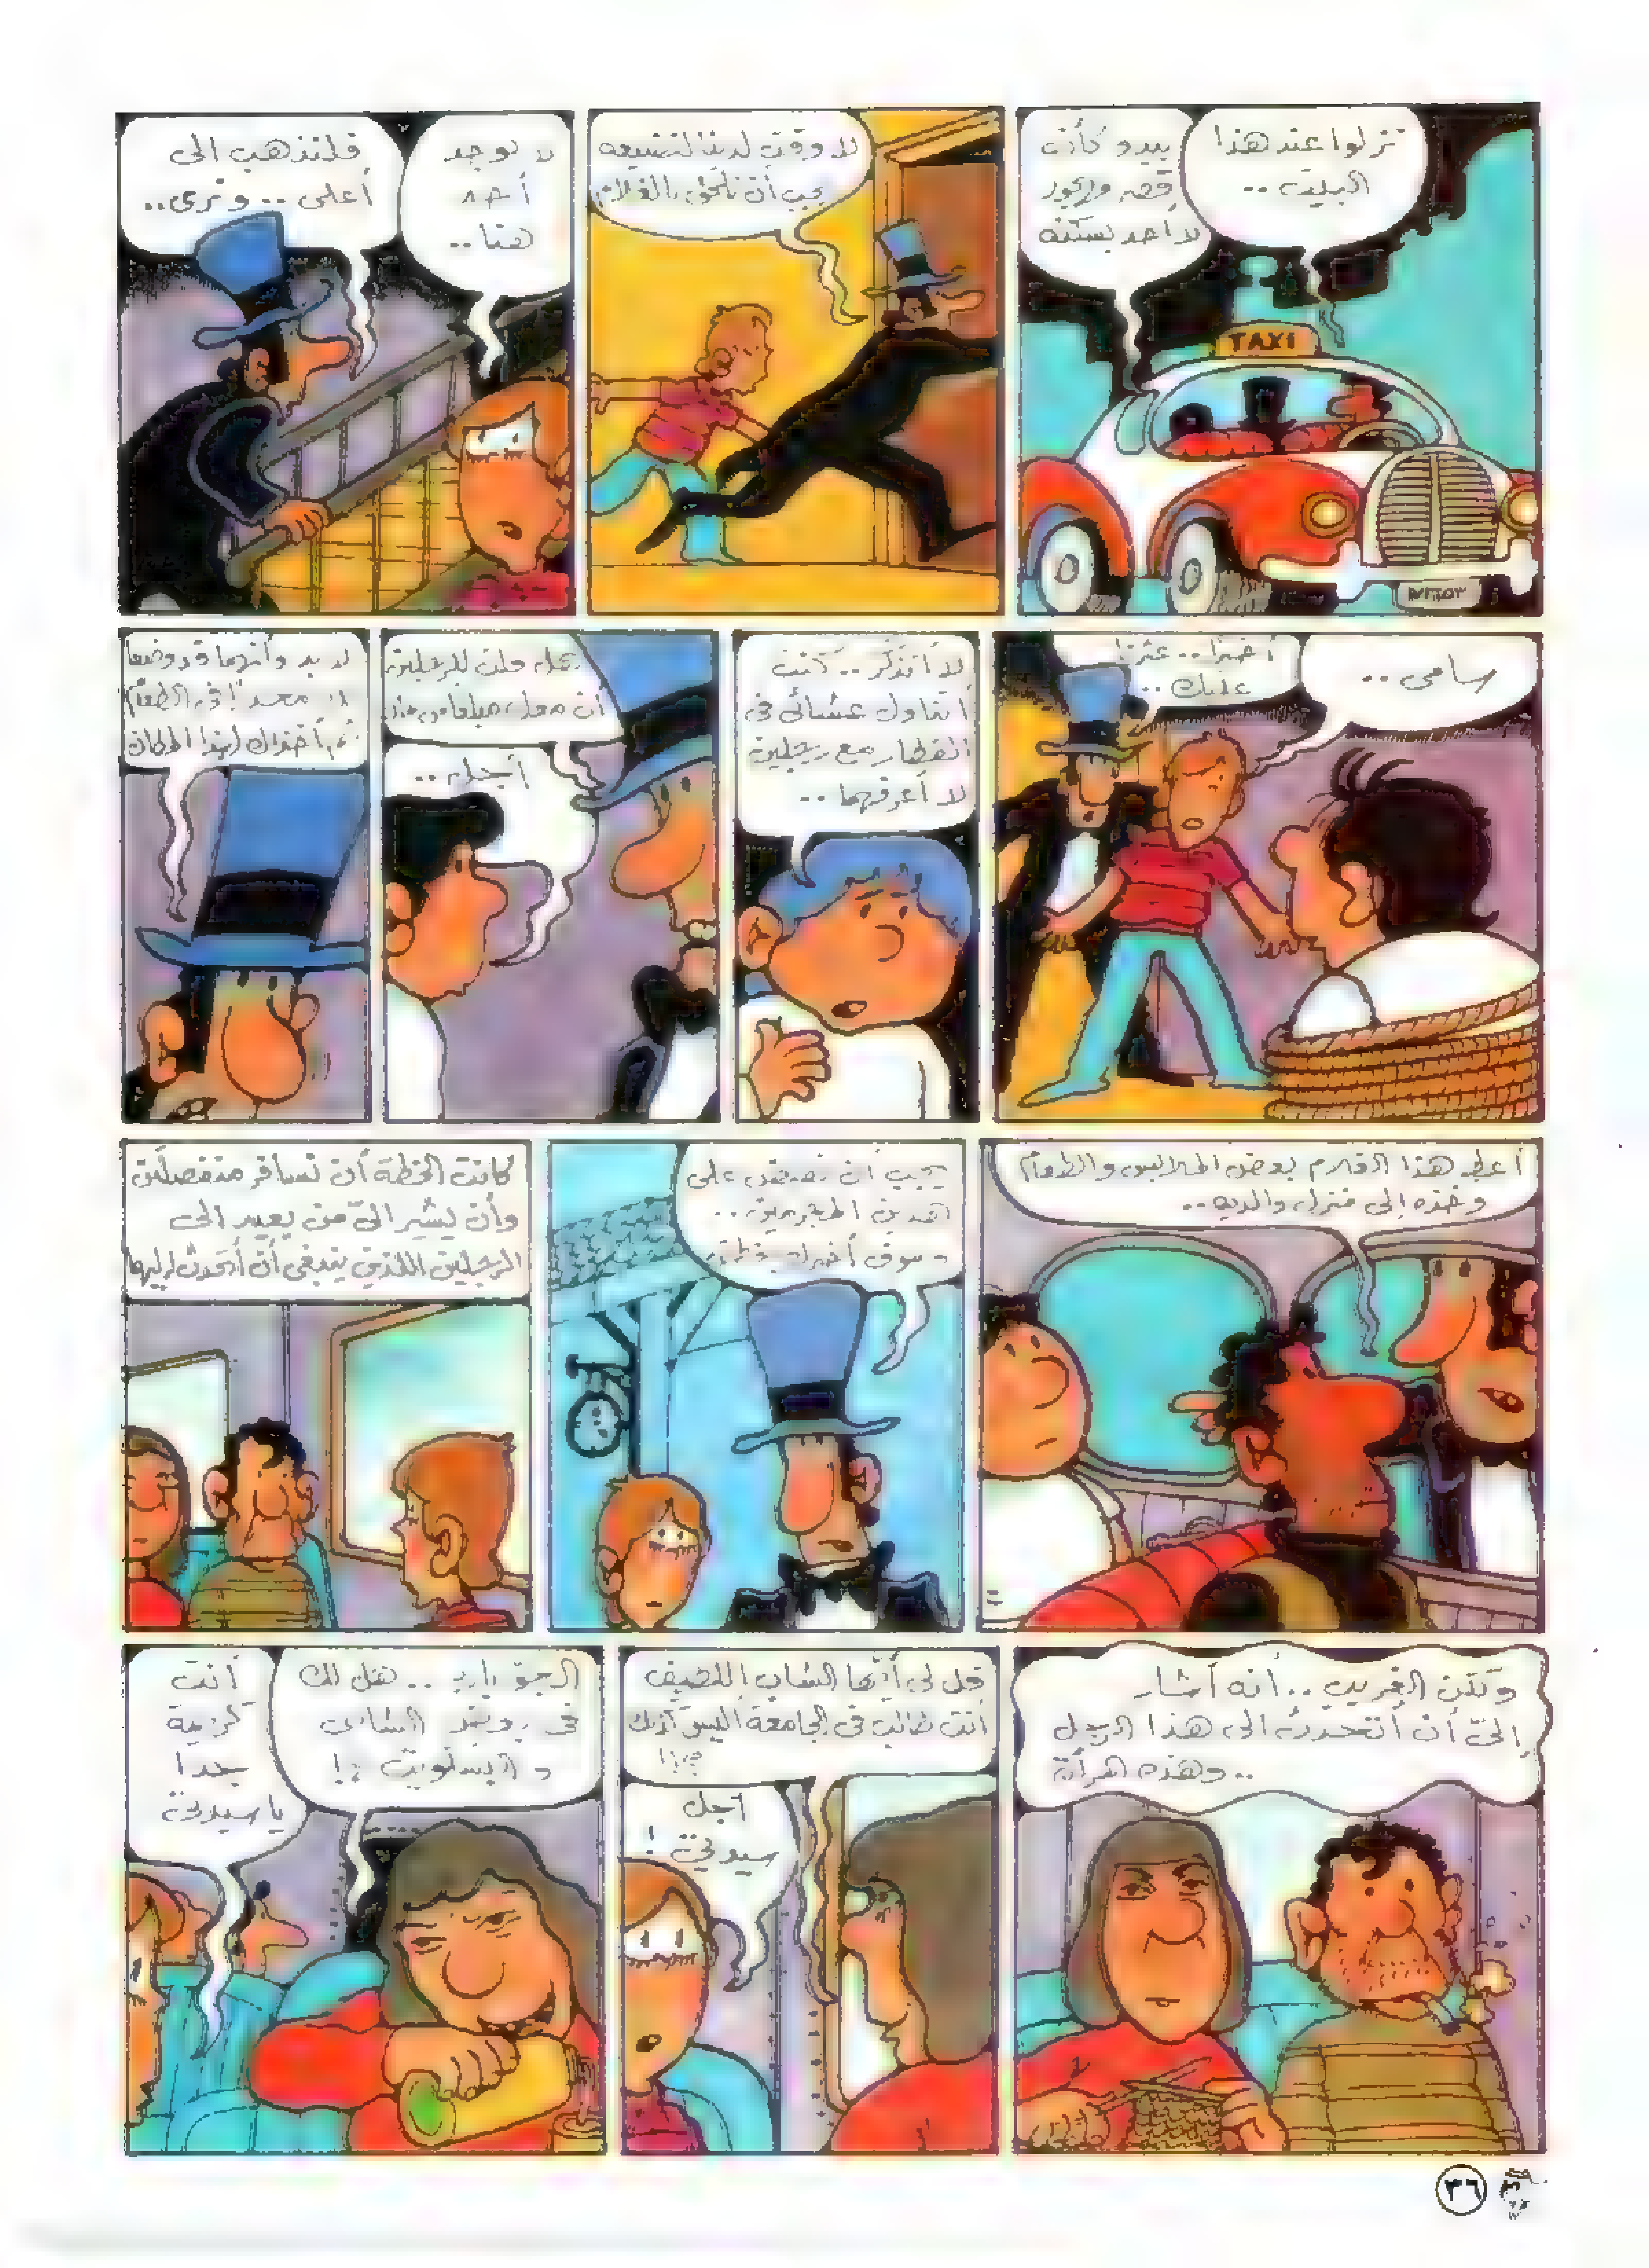 نزلوا عند هذا
البيت ..
يبدو كأنه
قصر مهجور
لا أحد يسكنه
TAXI
لا وقت لدينا لنضيعه
يجب أن نلحق بالغلام
لا يوجد
أحد
هنا ..
فلنذهب الى
أعلى .. ونرى ..
سامى ..
أخيرا .. عثرنا
عليك ..
لا أتذكر .. كنت
أتناول عشائى فى
القطار مع رجلين
لا أعرفهما ..
هل قلت للرجلين
أن معك مبلغا من
أجل ..
لا بد وأنهما قد وضعا
فى الطعام
ثم أخذاك لهذا المكان
أعط هذا الغلام بعض الملابس والطعام
وخذه إلى منزل والديه ..
يجب أن نقبض على
هذين المجرمين ..
وسوف أخبرك بخطتى
كانت الخطة أن نسافر منفصلين
وأن يشير الىّ من بعيد الى
الرجلين اللذين ينبغى أن أتحدث إليهما
ولكن الغريب .. أنه أشار
إلىّ أن أتحدث الى هذا الرجل
.. وهذه المرأة
قل لى أيها الشاب اللطيف
أنت طالب فى الجامعة أليس كذلك
؟!
أجل
سيدتى !
الجو بارد .. هل لك
فى بعض الشاى
والبسكويت ؟!
أنت
كريمة
جدا
يا سيدتى
٣٦